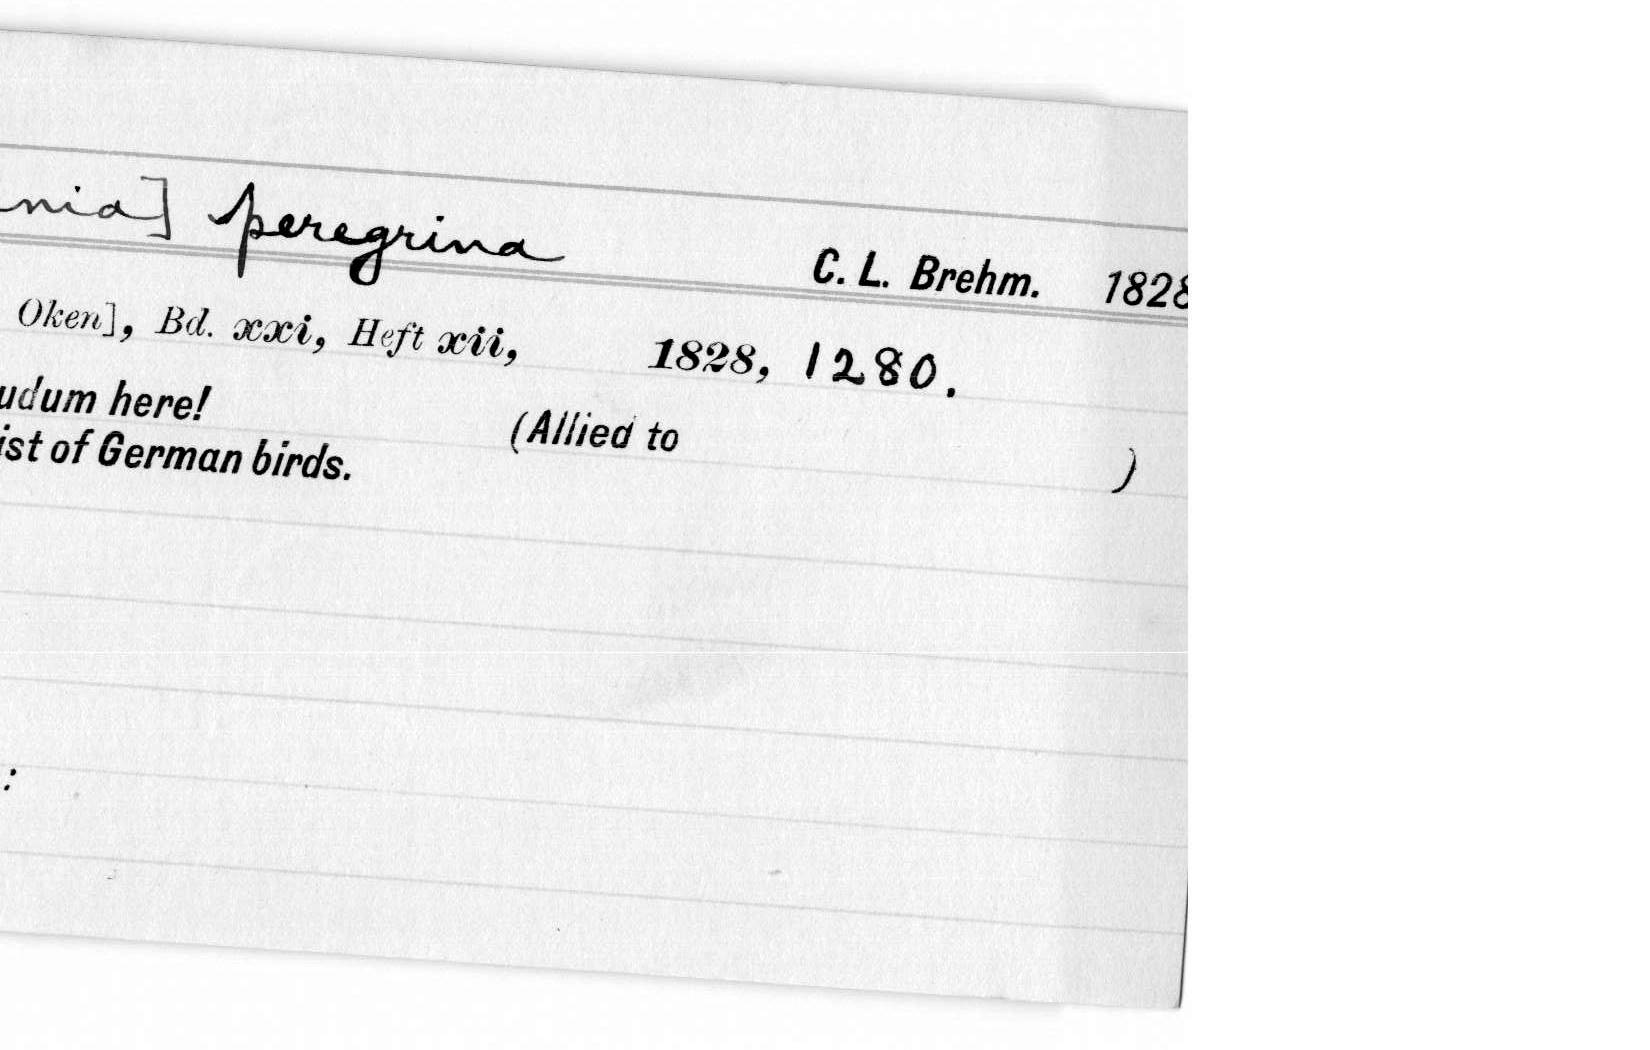 nia] peregrina C. L. Brehm. 1828
Oken], Bd. xxi, Heft xii, 1828, 1280.
udum here! (Allied to )
ist of German birds.
: